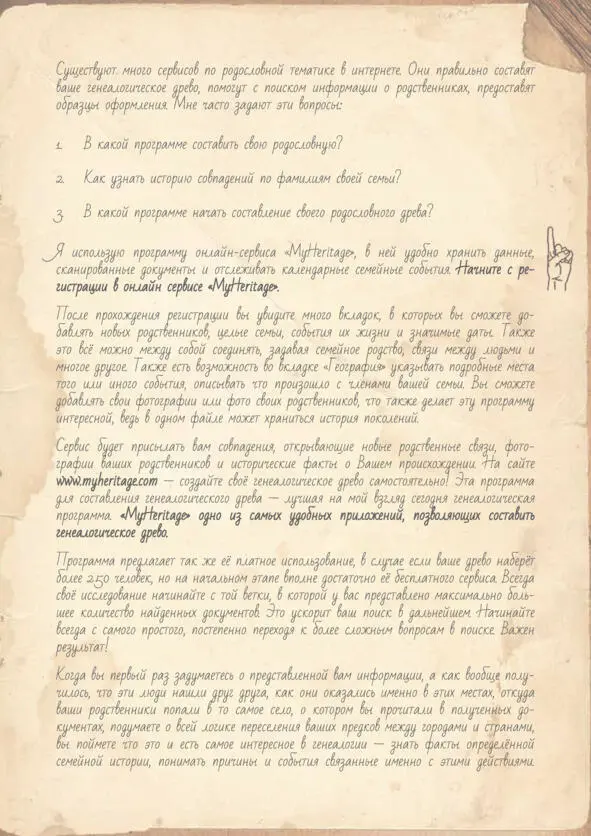 Существуют много сервисов по родословной тематике в интернете. Они правильно составят
ваше генеалогическое древо, помогут с поиском информации о родственниках, предоставят
образцы оформления. Мне часто задают эти вопросы:
1. В какой программе составить свою родословную?
2. Как узнать историю совпадений по фамилиям своей семьи?
3. В какой программе начать составление своего родословного древа?
Я использую программу онлайн-сервиса «MyHeritage», в ней удобно хранить данные,
сканированные документы и отслеживать календарные семейные события. Начните с ре-
гистрации в онлайн сервисе «MyHeritage».
После прохождения регистрации вы увидите много вкладок, в которых вы сможете до-
бавлять новых родственников, целые семьи, события их жизни и значимые даты. Также
это всё можно между собой соединять, задавая семейное родство, связи между людьми и
многое другое. Также есть возможность во вкладке «География» указывать подробные места
того или иного события, описывать что произошло с членами вашей семьи. Вы сможете
добавлять свои фотографии или фото своих родственников, что также делает эту программу
интересной, ведь в одном файле может храниться история поколений.
Сервис будет присылать вам совпадения, открывающие новые родственные связи, фото-
графии ваших родственников и исторические факты о Вашем происхождении. На сайте
www.myheritage.com — создайте своё генеалогическое древо самостоятельно! Эта программа
для составления генеалогического древа — лучшая на мой взгляд сегодня генеалогическая
программа. «MyHeritage» одно из самых удобных приложений, позволяющих составить
генеалогическое древо.
Программа предлагает так же её платное использование, в случае если ваше древо наберёт
более 250 человек, но на начальном этапе вполне достаточно её бесплатного сервиса. Всегда
своё исследование начинайте с той ветки, в которой у вас представлено максимально боль-
шее количество найденных документов. Это ускорит ваш поиск в дальнейшем. Начинайте
всегда с самого простого, постепенно переходя к более сложным вопросам в поиске. Важен
результат!
Когда вы первый раз задумаетесь о представленной вам информации, а как вообще полу-
чилось, что эти люди нашли друг друга, как они оказались именно в этих местах, откуда
ваши родственники попали в то самое село, о котором вы прочитали в полученных до-
кументах, подумаете о всей логике переселения ваших предков между городами и странами,
вы поймете что это и есть самое интересное в генеалогии — знать факты определённой
семейной истории, понимать причины и события связанные именно с этими действиями.